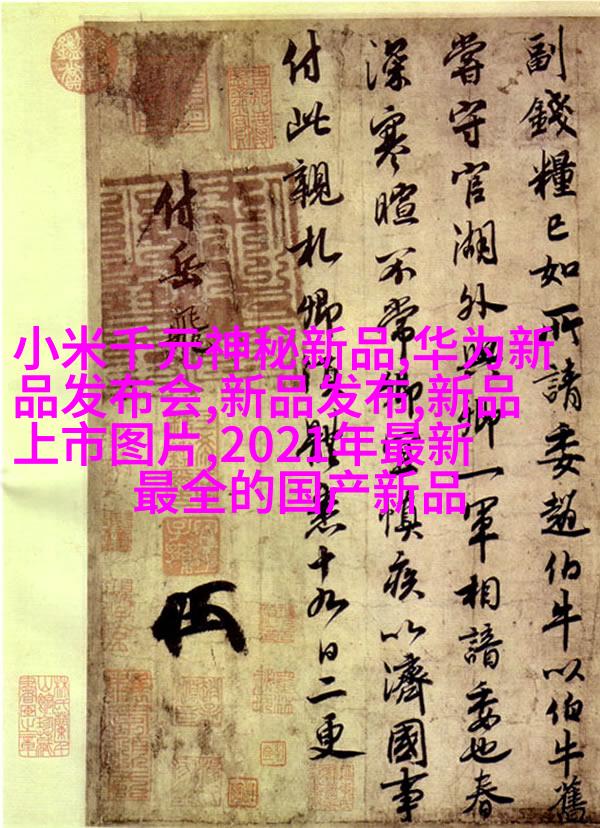 小米千元神秘新品,华为新
品发布会,新品发布,新品
上市图片,2021年最新
最全的国产新品
副錢糧已如所請委趙伯牛以伯牛舊
嘗守官湖外與卿一軍相諳委也春
深寒暄不常卿宜慎疾以濟國事
付此親札卿須體悉十九日二更
付岳飛